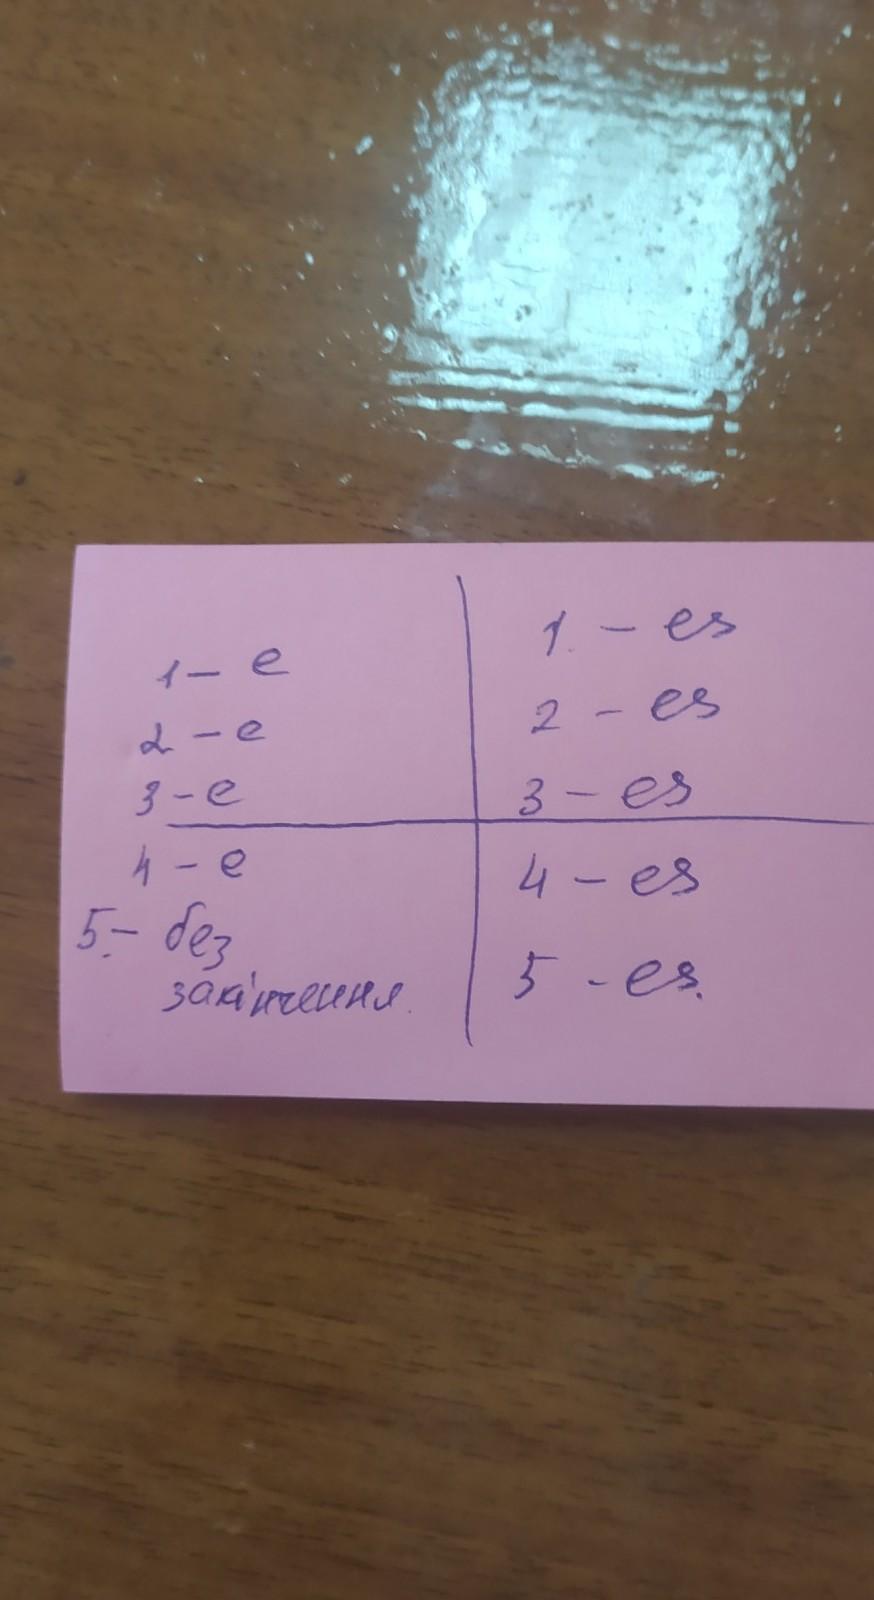 1 – e
2 – e
3 – e
4 – e
5. – без
закінчення.
1. – es
2 – es
3 – es
4 – es
5 – es.